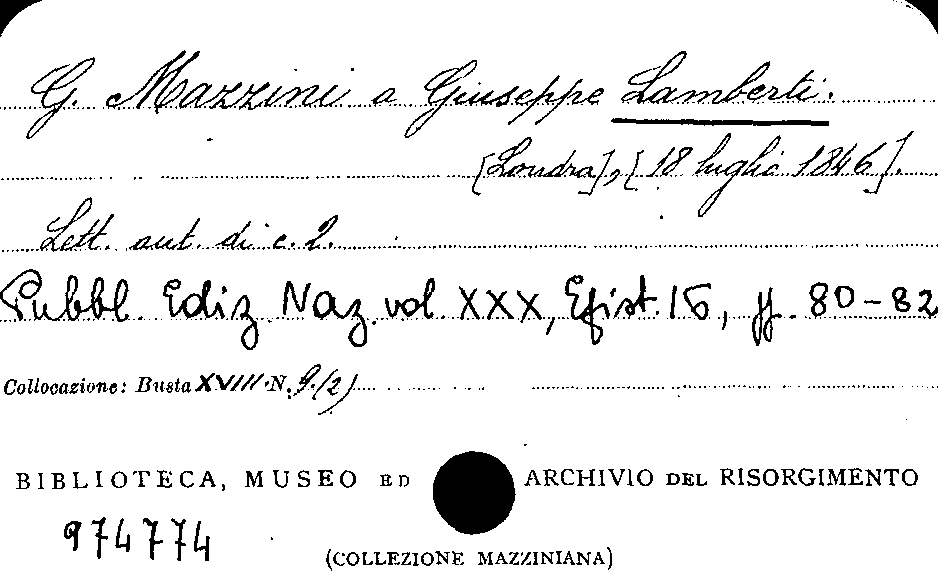 G. Mazzini a Giuseppe Lamberti.
[Londra], [18 luglio 1846].
Lett. aut. di c. 2.
Pubbl. Ediz. Naz. vol. XXX, Epist. 16, pp. 80-82
Collocazione: Busta XVIII N. 9.(2)
BIBLIOTECA, MUSEO ED ARCHIVIO DEL RISORGIMENTO
974774
(COLLEZIONE MAZZINIANA)